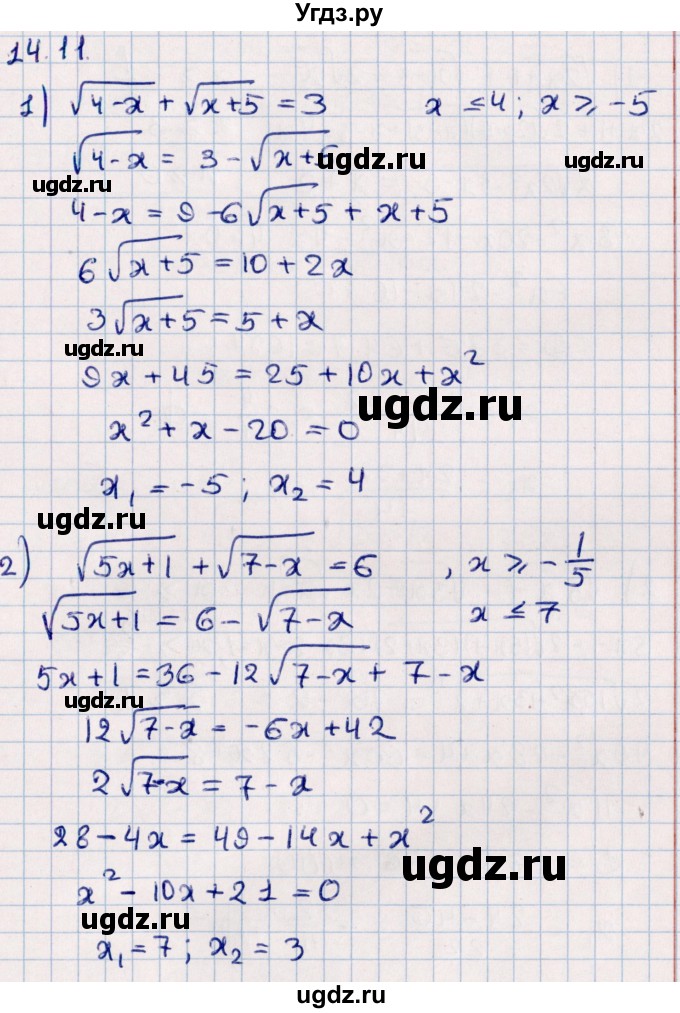 Угдз.ру
14.11.
1) √(4-x) + √(x+5) = 3    x ≤ 4; x ≥ -5
√(4-x) = 3 - √(x+5)
ugdz.ru
ugdz.ru
ugdz.ru
4-x = 9 - 6√(x+5) + x + 5
6√(x+5) = 10 + 2x
3√(x+5) = 5 + x
ugdz.ru
9x + 45 = 25 + 10x + x²
ugdz.ru
x² + x - 20 = 0
x₁ = -5; x₂ = 4
ugdz.ru
2) √(5x+1) + √(7-x) = 6    , x ≥ -1/5
√(5x+1) = 6 - √(7-x)    x ≤ 7
5x+1 = 36 - 12√(7-x) + 7 - x
ugdz.ru
12√(7-x) = -6x + 42
2√(7-x) = 7 - x
28 - 4x = 49 - 14x + x²
ugdz.ru
x² - 10x + 21 = 0
ugdz.ru
x₁ = 7; x₂ = 3
ugdz.ru